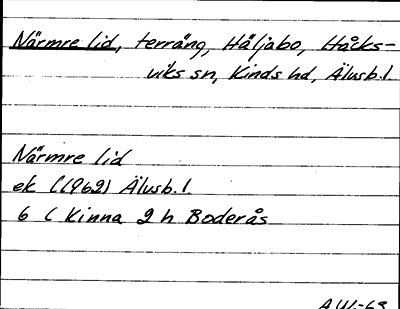 Närmre lid, terräng, Häljabo, Håcks-
viks sn, Kinds hd, Älvsb. l.
Närmre lid
ek (1962) Älvsb. l.
6 C Kinna 2 h Boderås